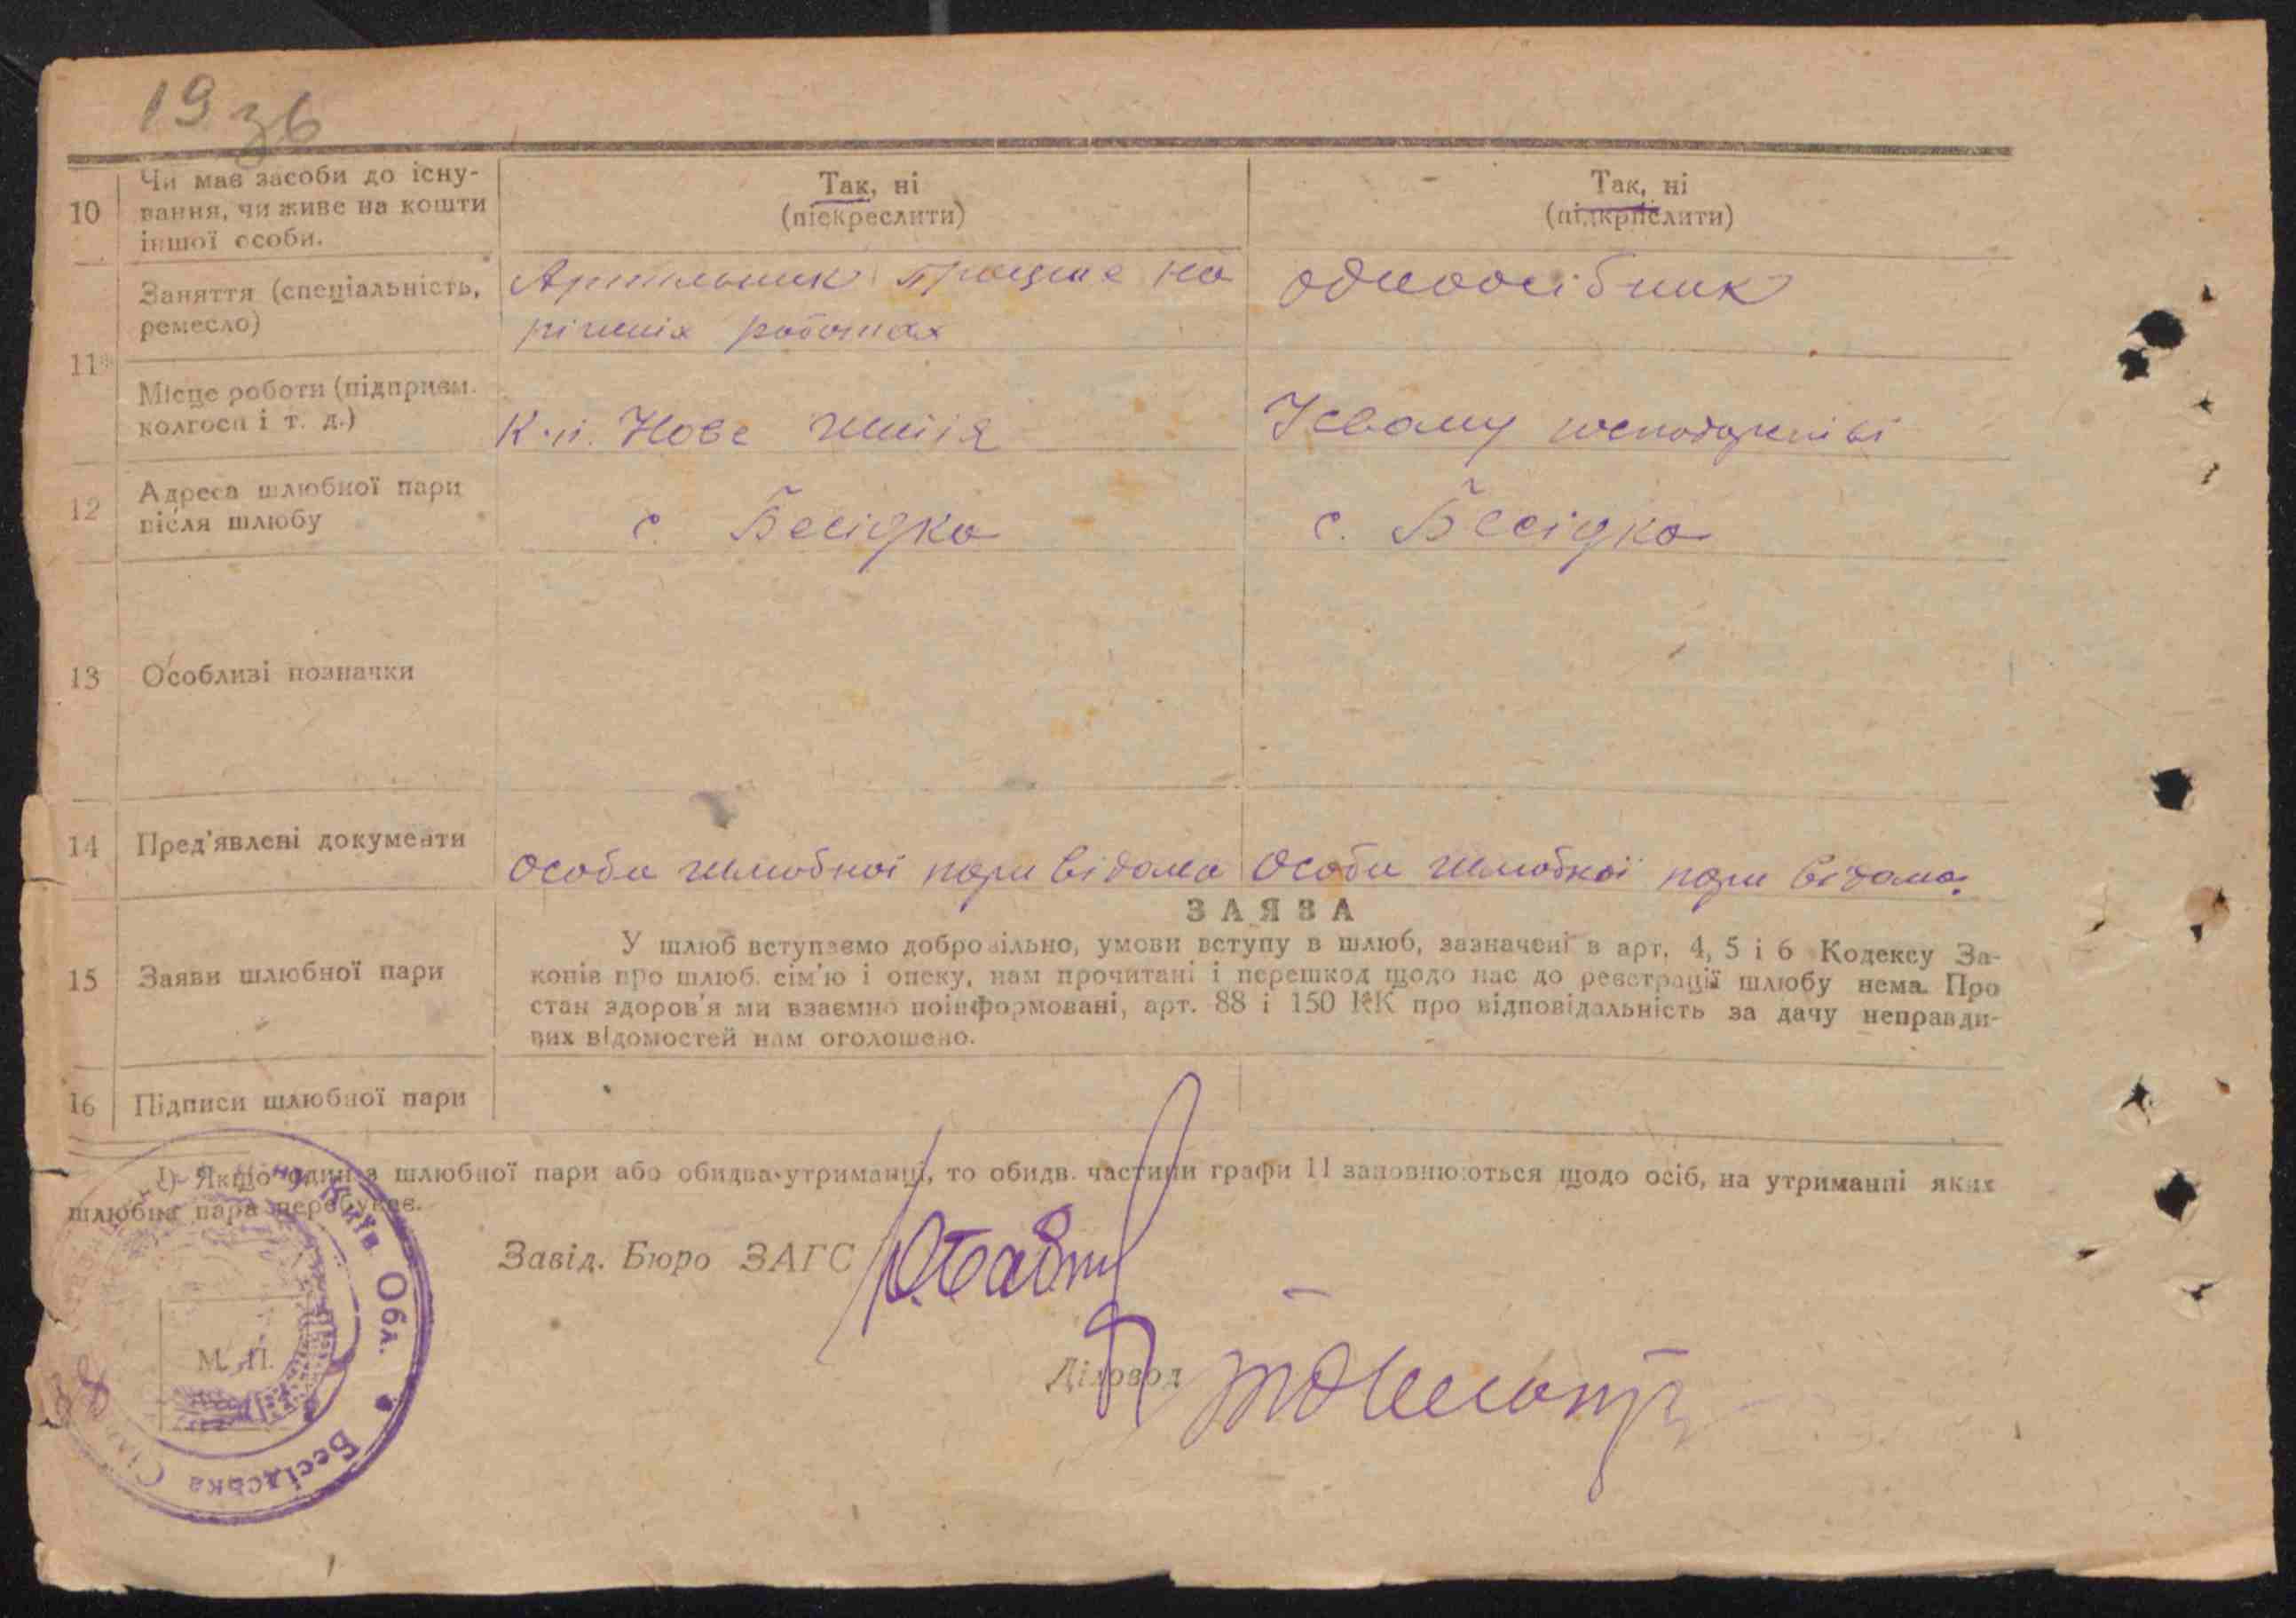 19 зв
10
Чи має засоби до існу-
вання, чи живе на кошти
іншої особи.
Так, ні
(підкреслити)
Так, ні
(підкреслити)
11
Заняття (спеціальність,
ремесло)
Артільник працює на
різних роботах
одноосібник
Місце роботи (підприєм.
колгосп і т. д.)
К-п. Нове життя
У свому господарстві
12
Адреса шлюбної пари
після шлюбу
с. Бесідка
с. Бесідка
13
Особливі позначки
14
Пред'явлені документи
Особи шлюбної пари відома
Особи шлюбної пари відома.
ЗАЯВА
15
Заяви шлюбної пари
У шлюб вступаємо добровільно, умови вступу в шлюб, зазначені в арт. 4, 5 і 6 Кодексу За-
конів про шлюб. сім'ю і опеку, нам прочитані і перешкод щодо нас до реєстрації шлюбу нема. Про
стан здоров'я ми взаємно поінформовані, арт. 88 і 150 КК про відповідальність за дачу неправди-
вих відомостей нам оголошено.
16
Підписи шлюбної пари
1) Якщо один з шлюбної пари або обидва утриманці, то обидв. частини графи 11 заповнюються щодо осіб, на утриманні яких
шлюбна пара перебуває.
Завід. Бюро ЗАГС
Діловод
М. П.
Київ. Обл.
Бесідська